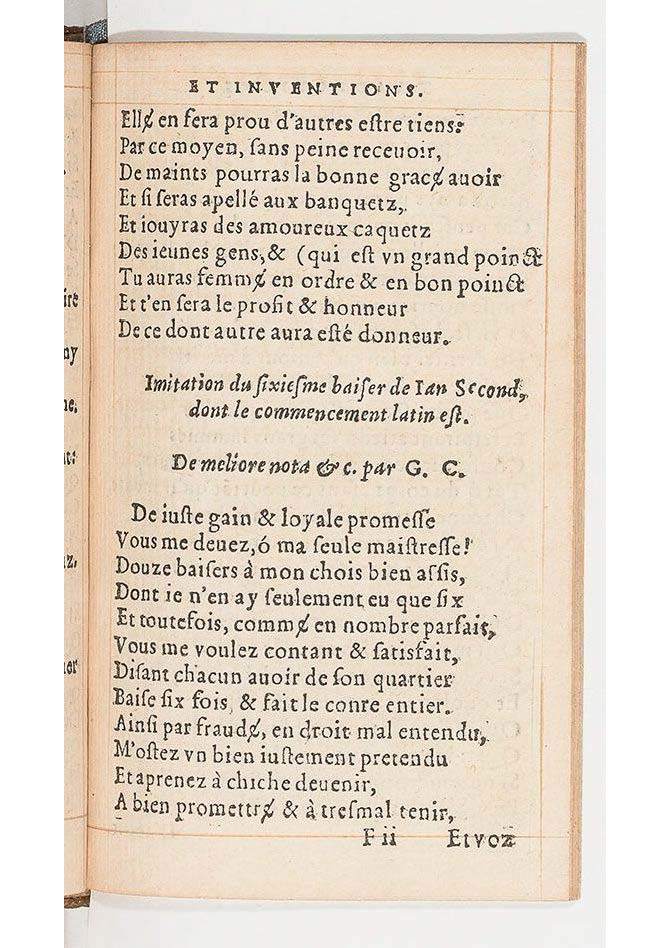 ET INVENTIONS.
Ellɇ en ſera prou d'autres eſtre tiens:
Par ce moyen, ſans peine receuoir,
De maints pourras la bonne gracɇ auoir
Et ſi ſeras apellé aux banquetz,
Et iouyras des amoureux caquetz
Des ieunes gens, & (qui eſt vn grand poinct
Tu auras femmɇ en ordre & en bon poinct
Et t'en ſera le profit & honneur
De ce dont autre aura eſté donneur.
Imitation du ſixieſme baiſer de Ian Second,
dont le commencement latin eſt.
De meliore nota & c. par G. C.
De iuſte gain & loyale promeſſe
Vous me deuez, ó ma ſeule maiſtreſſe!
Douze baiſers à mon chois bien aſsis,
Dont ie n'en ay ſeulement eu que ſix
Et toutefois, commɇ en nombre parfait,
Vous me voulez contant & ſatisfait,
Diſant chacun auoir de ſon quartier
Baiſe ſix fois, & fait le conre entier.
Ainſi par fraudɇ, en droit mal entendu,
M'oſtez vn bien iuſtement pretendu
Et aprenez à chiche deuenir,
A bien promettrɇ & à treſmal tenir,
F ii Et voz
ire
ny
ne,
z,
ner